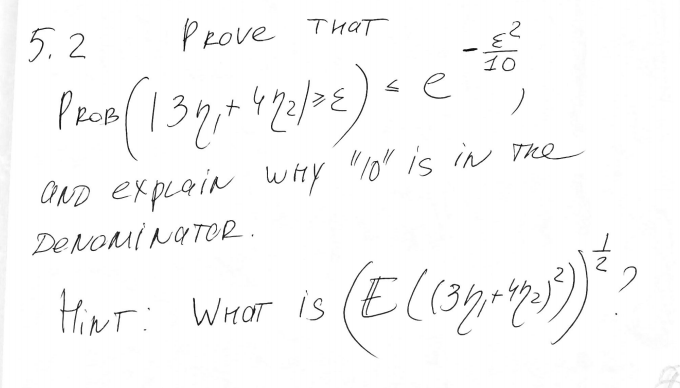 5.2 PROVE THAT
PROB(|3η₁+4η₂|≥ε) ≤ e^{-ε²/10},
AND EXPLAIN WHY "10" IS IN THE
DENOMINATOR.
HINT: WHAT IS (𝔼((3η₁+4η₂)²))^{1/2}?